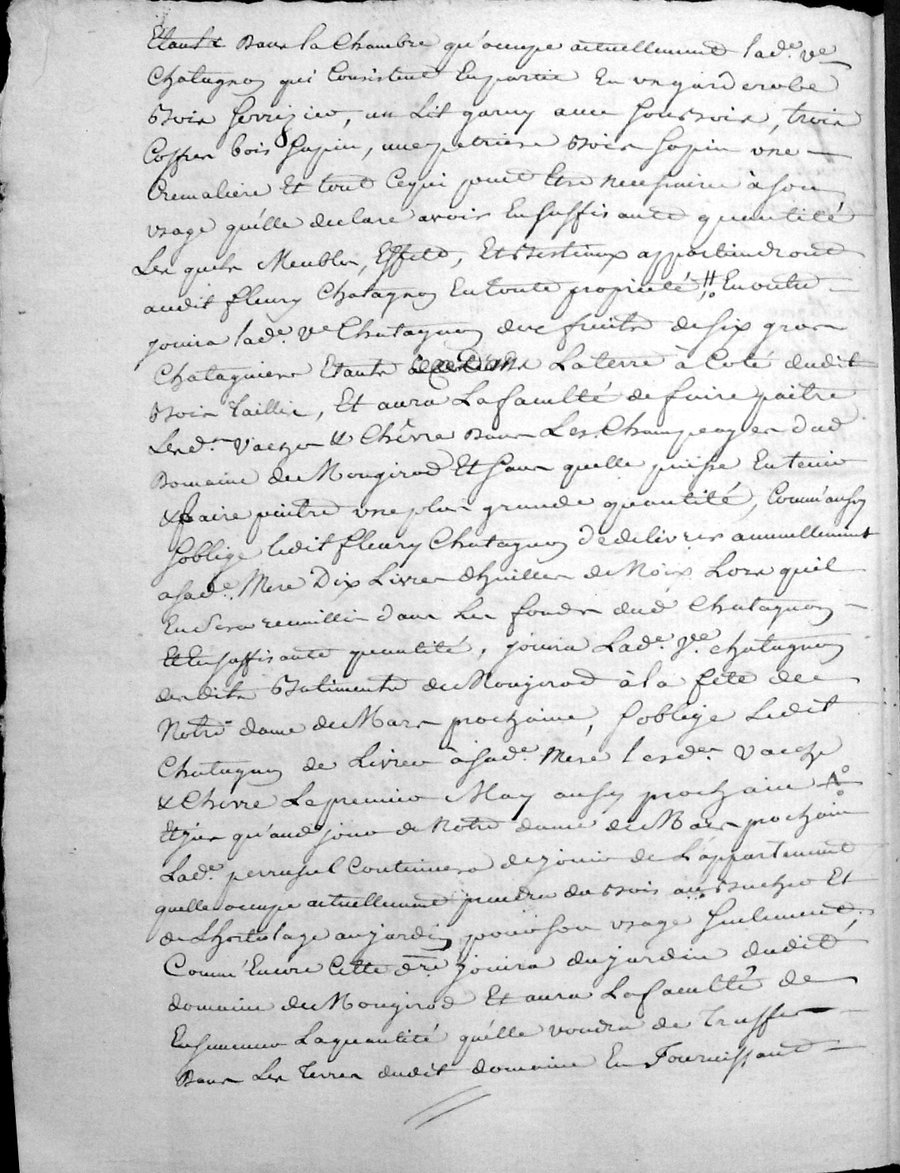 Etants Dans la Chambre qu'ocupe actuellement lad.e v.e
Chatagnon qui Consistent En partie En un gard'erobe
Bois Serrizier, un Lit garny avec Son Bois, trois
Coffres bois Sapin, une petriere Bois Sapin une
Cremaliere Et tout Cequi peut Etre necessaire à son
usage qu'elle declare avoir En suffisante quantité
Les quels Meubles, Effets, Et Bestiaux appartiendront
audit fleury Chatagnon En toute proprieté, En outre
jouira lad.e v.e Chatagnon des fruits de Six gros
Chataguiers Etants dans La terre à Coté dudit
Bois taillis, Et aura La faculté de faire paitre
Lesd. Vaches & Chêvre Dans Les Champeages dud
Domaine de Mongirod Et sans quelle puisse En tenir
& faire paitre une plus grande quantité, Comm'aussy
S'oblige ledit fleury Chatagnon de delivrer annuellement
asad.e Mere Dix Livres d'huilles de Noix Lors quil
En Sera recuilli dans Les fonds dud Chatagnon
Et En suffisante quantité, jouira Lad.e V.e chatagnon
desdits Batiments de Mongirod à la fête de
Notre dame de Mars prochaine, S'oblige Ledit
Chatagnon de Livrer à sad.e Mere lesd. Vache
& Chevre Le premier May aussy prochain
Et jus qu'aud jour de Notre dame de Mars prochain
Lad.e perrussel Continuera de jouir de L'appartement
quelle ocupe actuellement prendra du Bois au Bucher Et
de Lhortolage au jardin pour son usage Seulement,
Comm'Encore Cette d.re jouira du jardin dudit
domaine de Mongirod Et aura La faculté de
Ensemencer La quantité qu'elle voudra de Truffes
Dans Les terres dudit domaine En Fournissant